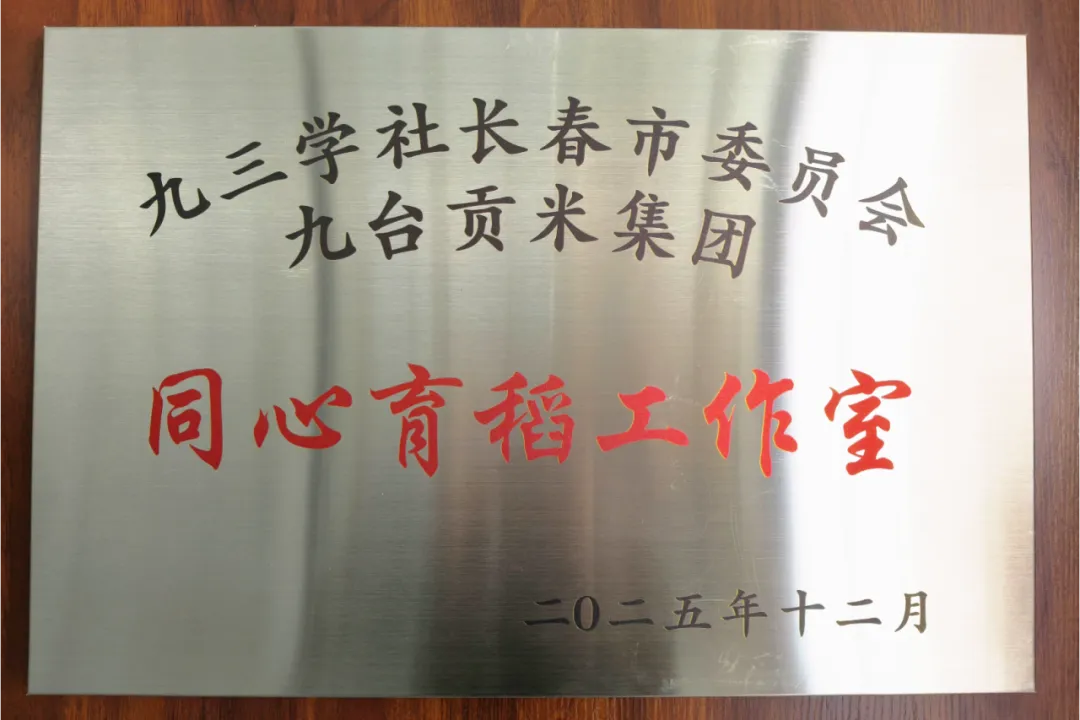 九三学社长春市委员会
九台贡米集团
同心育稻工作室
二〇二五年十二月